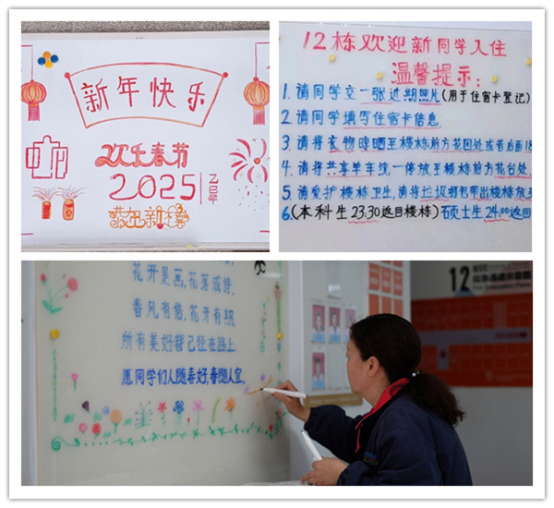 新年快乐
欢乐春节
2025
乙巳年
恭贺新禧
12栋欢迎新同学入住
温馨提示:
1. 请同学交一张近期照片(用于住宿卡登记)
2. 请同学填写住宿卡信息.
3. 请将衣物晾晒至楼栋前方花园处或
4. 请将共享单车统一停放至楼栋前方花台处.
5. 请爱护楼栋卫生,请将垃圾打包带出楼栋放至
6.(本科生23:30返回楼栋)硕士生24:00返回
花开是画,花落成诗.
春风有信,花开有期
所有美好都已经在路上
愿同学们人随春好,春随人宜.
12